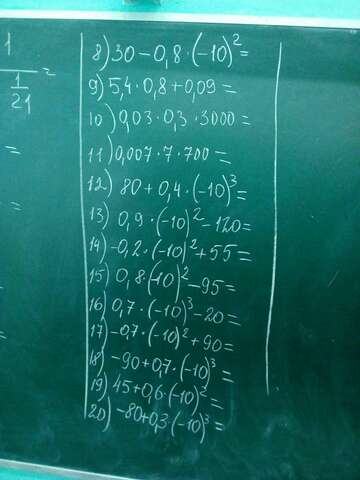 1
1
21
=
=
=
8) 30 - 0,8 · (-10)² =
9) 5,4 · 0,8 + 0,09 =
10) 0,03 · 0,3 · 3000 =
11) 0,007 · 7 · 700 =
12) 80 + 0,4 · (-10)³ =
13) 0,9 · (-10)² - 120 =
14) -0,2 · (-10)² + 55 =
15) 0,8 · (-10)² - 95 =
16) 0,7 · (-10)³ - 20 =
17) -0,7 · (-10)² + 90 =
18) -90 + 0,7 · (-10)³ =
19) 45 + 0,6 · (-10)² =
20) -80 + 0,3 · (-10)³ =